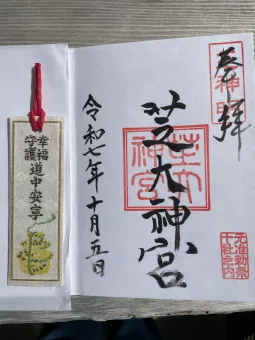 奉拝
芝大神宮
令和七年十月五日
元准勅祭
十社之内
芝大
神宮
幸福
守護
道中安寧